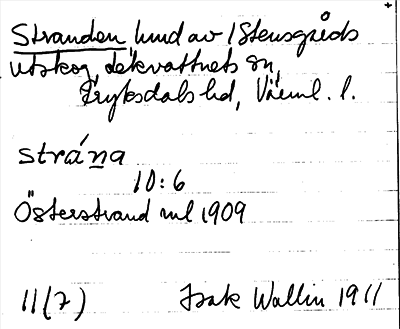 Stranden hmd av Stensgårds
utskog, Lekvattnets sn,
Fryksdals hd, Värml. l.
strána
10:6
Österstrand ml 1909
11(7) Isak Wallin 1911